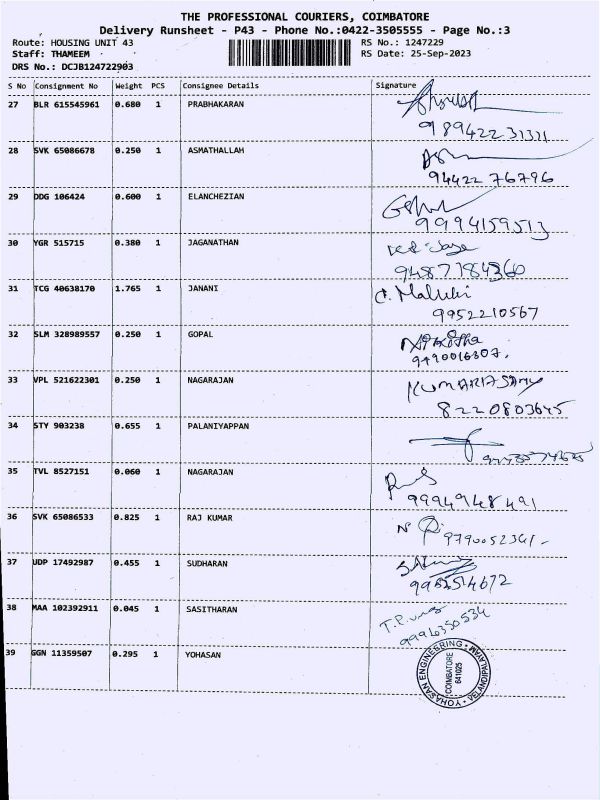 THE PROFESSIONAL COURIERS, COIMBATORE
Delivery Runsheet - P43 - Phone No.:0422-3505555 - Page No.:3
Route: HOUSING UNIT 43 RS No.: 1247229
Staff: THAMEEM RS Date: 25-Sep-2023
DRS No.: DCJB124722903
S No Consignment No Weight PCS Consignee Details Signature
27 BLR 615545961 0.680 1 PRABHAKARAN
28 SVK 65086678 0.250 1 ASMATHALLAH
94422 76796
29 DDG 106424 0.600 1 ELANCHEZIAN
9994159513
30 YGR 515715 0.380 1 JAGANATHAN
9487184360
31 TCG 40638170 1.765 1 JANANI
9952210567
32 SLM 328989557 0.250 1 GOPAL
9490016307.
33 VPL 521622301 0.250 1 NAGARAJAN
KUMARASAMY
8220803645
34 STY 903238 0.655 1 PALANIYAPPAN
35 TVL 8527151 0.060 1 NAGARAJAN
9994948491
36 SVK 65086533 0.825 1 RAJ KUMAR
9790052361
37 UDP 17492987 0.455 1 SUDHARAN
38 MAA 102392911 0.045 1 SASITHARAN
39 GGN 11359507 0.295 1 YOHASAN
YOHASAN ENGINEERING
VELANDIPALAYAM
COIMBATORE
641025